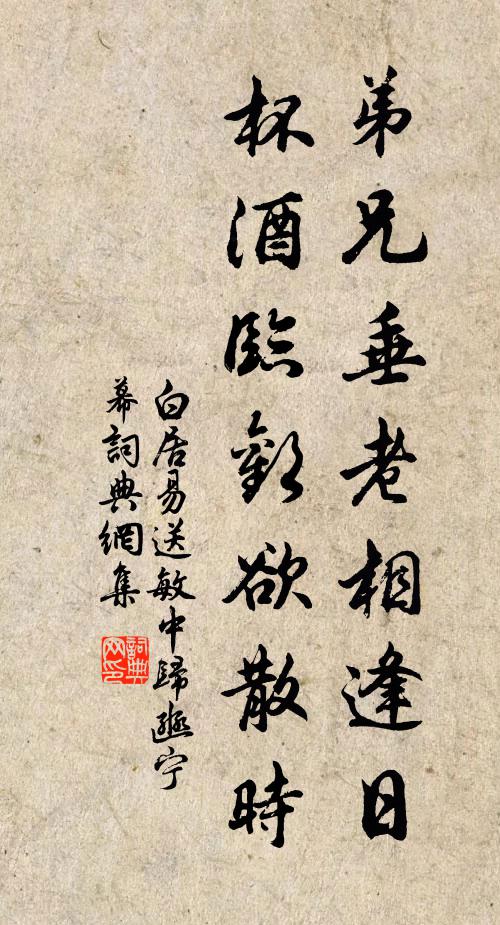 弟兄垂老相逢日
杯酒臨歡欲散時
白居易送敏中歸豳宁
幕詞典網集
詞典网印